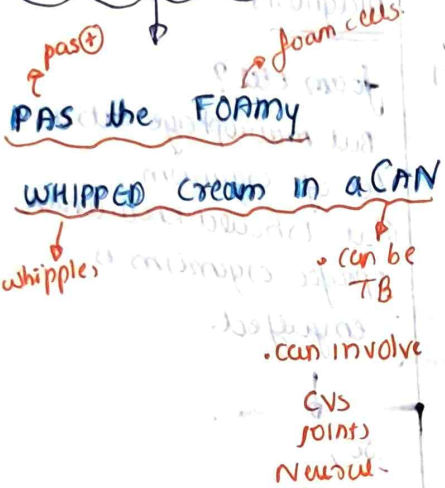 pas⊕
foam cells.
PAS the FOAMY
WHIPPED Cream in a CAN
whipples
• can be
TB
• can involve
CVS
joints
Neural.